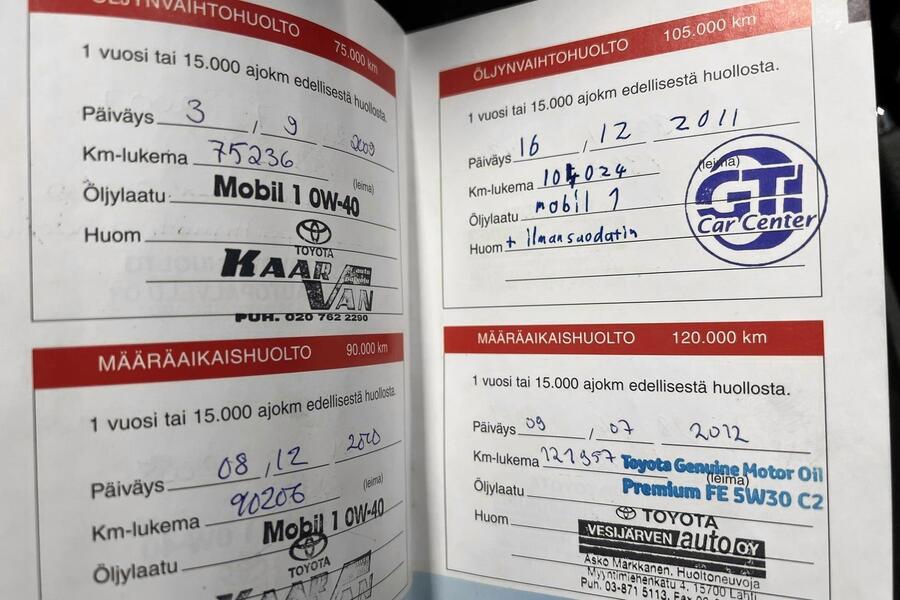 ÖLJYNVAIHTOHUOLTO 75.000 km
1 vuosi tai 15.000 ajokm edellisestä huollosta.
Päiväys 3 , 9 2009
Km-lukema 75236
(leima)
Öljylaatu Mobil 1 0W-40
Huom
TOYOTA
KAARVAN
autopalvelu
PUH. 020 762 2290
MÄÄRÄAIKAISHUOLTO 90.000 km
1 vuosi tai 15.000 ajokm edellisestä huollosta.
Päiväys 08 , 12 2010
Km-lukema 90206
(leima)
Öljylaatu Mobil 1 0W-40
TOYOTA
KAARVAN
ÖLJYNVAIHTOHUOLTO 105.000 km
1 vuosi tai 15.000 ajokm edellisestä huollosta.
Päiväys 16 , 12 2011
Km-lukema 104024
(leima)
Öljylaatu mobil 1
GTI
Car Center
Huom + ilmansuodatin
MÄÄRÄAIKAISHUOLTO 120.000 km
1 vuosi tai 15.000 ajokm edellisestä huollosta.
Päiväys 09 , 07 2012
Km-lukema 121957 Toyota Genuine Motor Oil
(leima)
Öljylaatu Premium FE 5W30 C2
Huom
TOYOTA
VESIJÄRVEN auto OY
Asko Markkanen, Huoltoneuvoja
Myyntimiehenkatu 4, 15700 Lahti
Puh. 03-871 5113, Fax 03